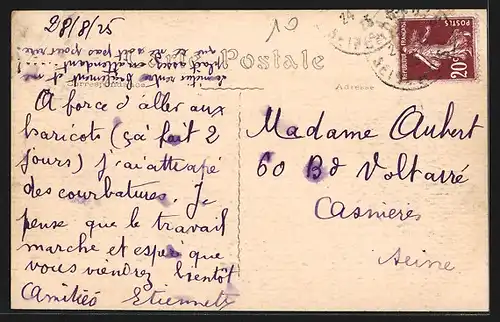 28/8/25
10
Carte Postale
Correspondance
Adresse
POSTES
20c
A force d'aller aux
haricots (ça fait 2
jours) j'ai attrapé
des courbatures. Je
pense que le travail
marche et espère que
vous viendrez bientôt
Amitiés Etiennette
Madame Aubert
60 Bd Voltaire
Asnieres
Seine